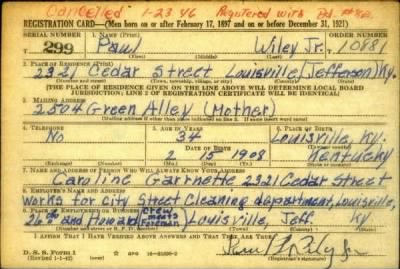 Cancelled 1-23-46 Registered with Bd. #
REGISTRATION CARD—(Men born on or after February 17, 1897 and on or before December 31, 1921)
SERIAL NUMBER 1. NAME (Print) ORDER NUMBER
299 Paul Wiley Jr. 10881
(First) (Middle) (Last)
2. PLACE OF RESIDENCE (Print)
2321 Cedar Street Louisville, (Jefferson) Ky.
(Number and street) (Town, township, village, or city) (County) (State)
[THE PLACE OF RESIDENCE GIVEN ON THE LINE ABOVE WILL DETERMINE LOCAL BOARD
JURISDICTION; LINE 2 OF REGISTRATION CERTIFICATE WILL BE IDENTICAL]
3. MAILING ADDRESS
2504 Green Alley (Mother)
[Mailing address if other than place indicated on line 2. If same insert word same]
4. TELEPHONE 5. AGE IN YEARS 6. PLACE OF BIRTH
No 34 Louisville, Ky.
DATE OF BIRTH (Town or county)
2 1908 Kentucky
(Mo.) (Day) (Yr.) (State or country)
7. NAME AND ADDRESS OF PERSON WHO WILL ALWAYS KNOW YOUR ADDRESS
Caroline Garrnette 2321 Cedar Street
8. EMPLOYER'S NAME AND ADDRESS
Works for City Street Cleaning department, Louisville,
9. PLACE OF EMPLOYMENT OR BUSINESS (Crew meets foreman)
26th and Howard Louisville, Jeff. Ky
(Number and street or R. F. D. number) (Town) (County) (State)
I AFFIRM THAT I HAVE VERIFIED ABOVE ANSWERS AND THAT THEY ARE TRUE.
D. S. S. Form 1
(Revised 1-1-42) (over)
Paul Wiley Jr